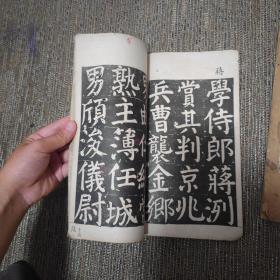 學侍郎蔣洌
賞其判京兆
兵曹襲金鄉
男
熟主簿任城
男浚儀尉